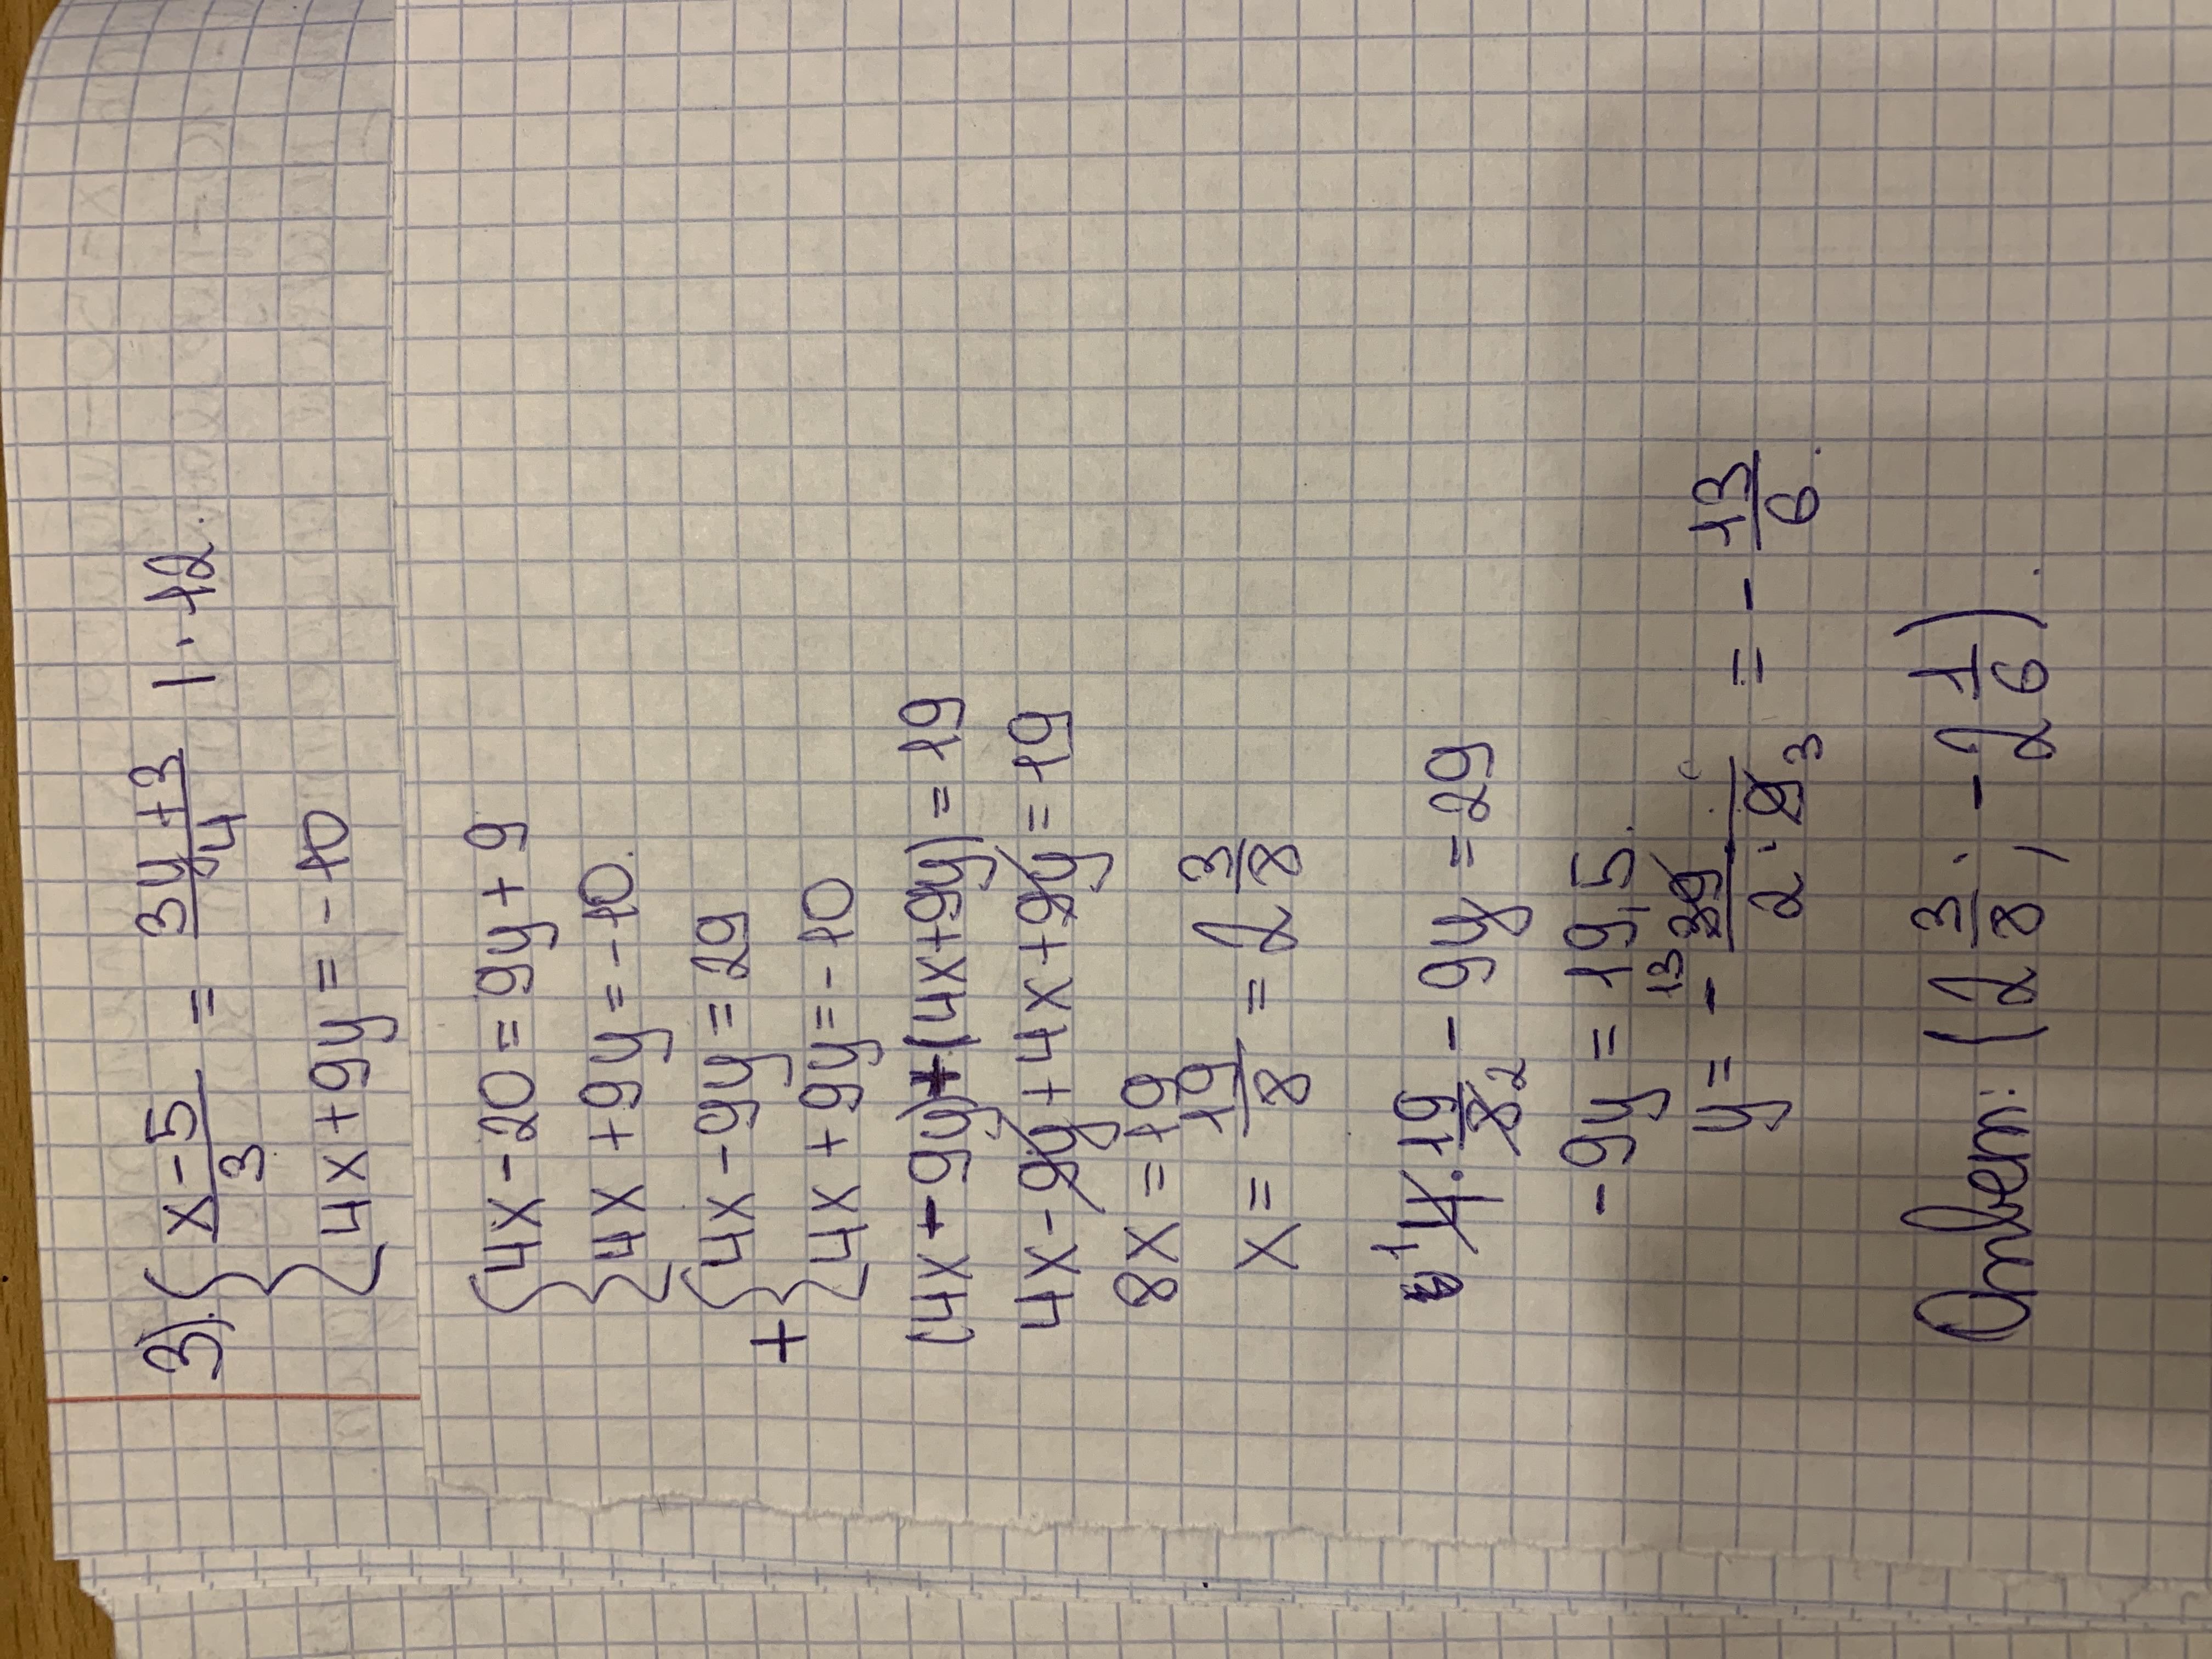 3). { (x-5)/3 = (3y+3)/4 | · 12.
4x+9y = -10
{ 4x-20 = 9y+9
4x+9y = -10.
+ { 4x-9y = 29
4x+9y = -10
(4x-9y)+(4x+9y) = 19
4x-9y+4x+9y = 19
8x = 19
x = 19/8 = 2 3/8
1 4 · 19/8 2 - 9y = 29
-9y = 19,5.
y = - 13 39/(2·9 3) = - 13/6.
Ответ: (2 3/8; -2 1/6).